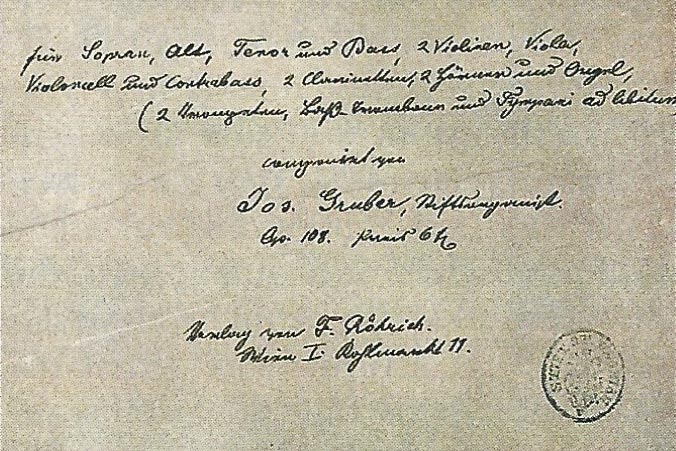 für Sopran, Alt, Tenor und Bass, 2 Violinen, Viola,
Violoncell und Contrabass, 2 Clarinetten, 2 Hörner und Orgel,
(2 Trompeten, Baß-Trombone und Tympani ad libitum)
componirt von
Jos. Gruber, Stiftsorganist.
Op. 108. Preis 6 K
Verlag von F. Röhrich.
Wien I. Kohlmarkt 11.